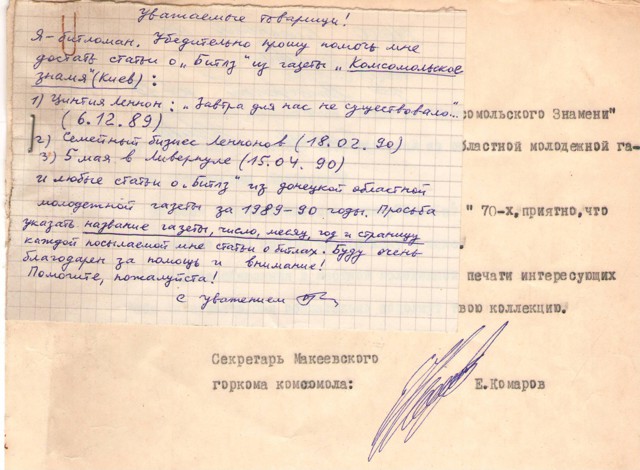 Уважаемые товарищи!
Я – битломан. Убедительно прошу помочь мне
достать статьи о „Битлз" из газеты „Комсомольское
знамя" (Киев):
1) Цинтия Леннон: „Завтра для нас не существовало"...
(6.12.89)
2) Семейный бизнес Леннонов (18.02.90)
3) 5 мая в Ливерпуле (15.04.90)
и любые статьи о „Битлз" из донецкой областной
молодежной газеты за 1989–90 годы. Просьба
указать название газеты, число, месяц, год и страницу
каждой посылаемой мне статьи о битлах. Буду очень
благодарен за помощь и внимание!
Помогите, пожалуйста!
С уважением
сомольского Знамени"
бластной молодежной га-
" 70-х, приятно, что
печати интересующих
вою коллекцию.
Секретарь Макеевского
горкома комсомола: Е.Комаров